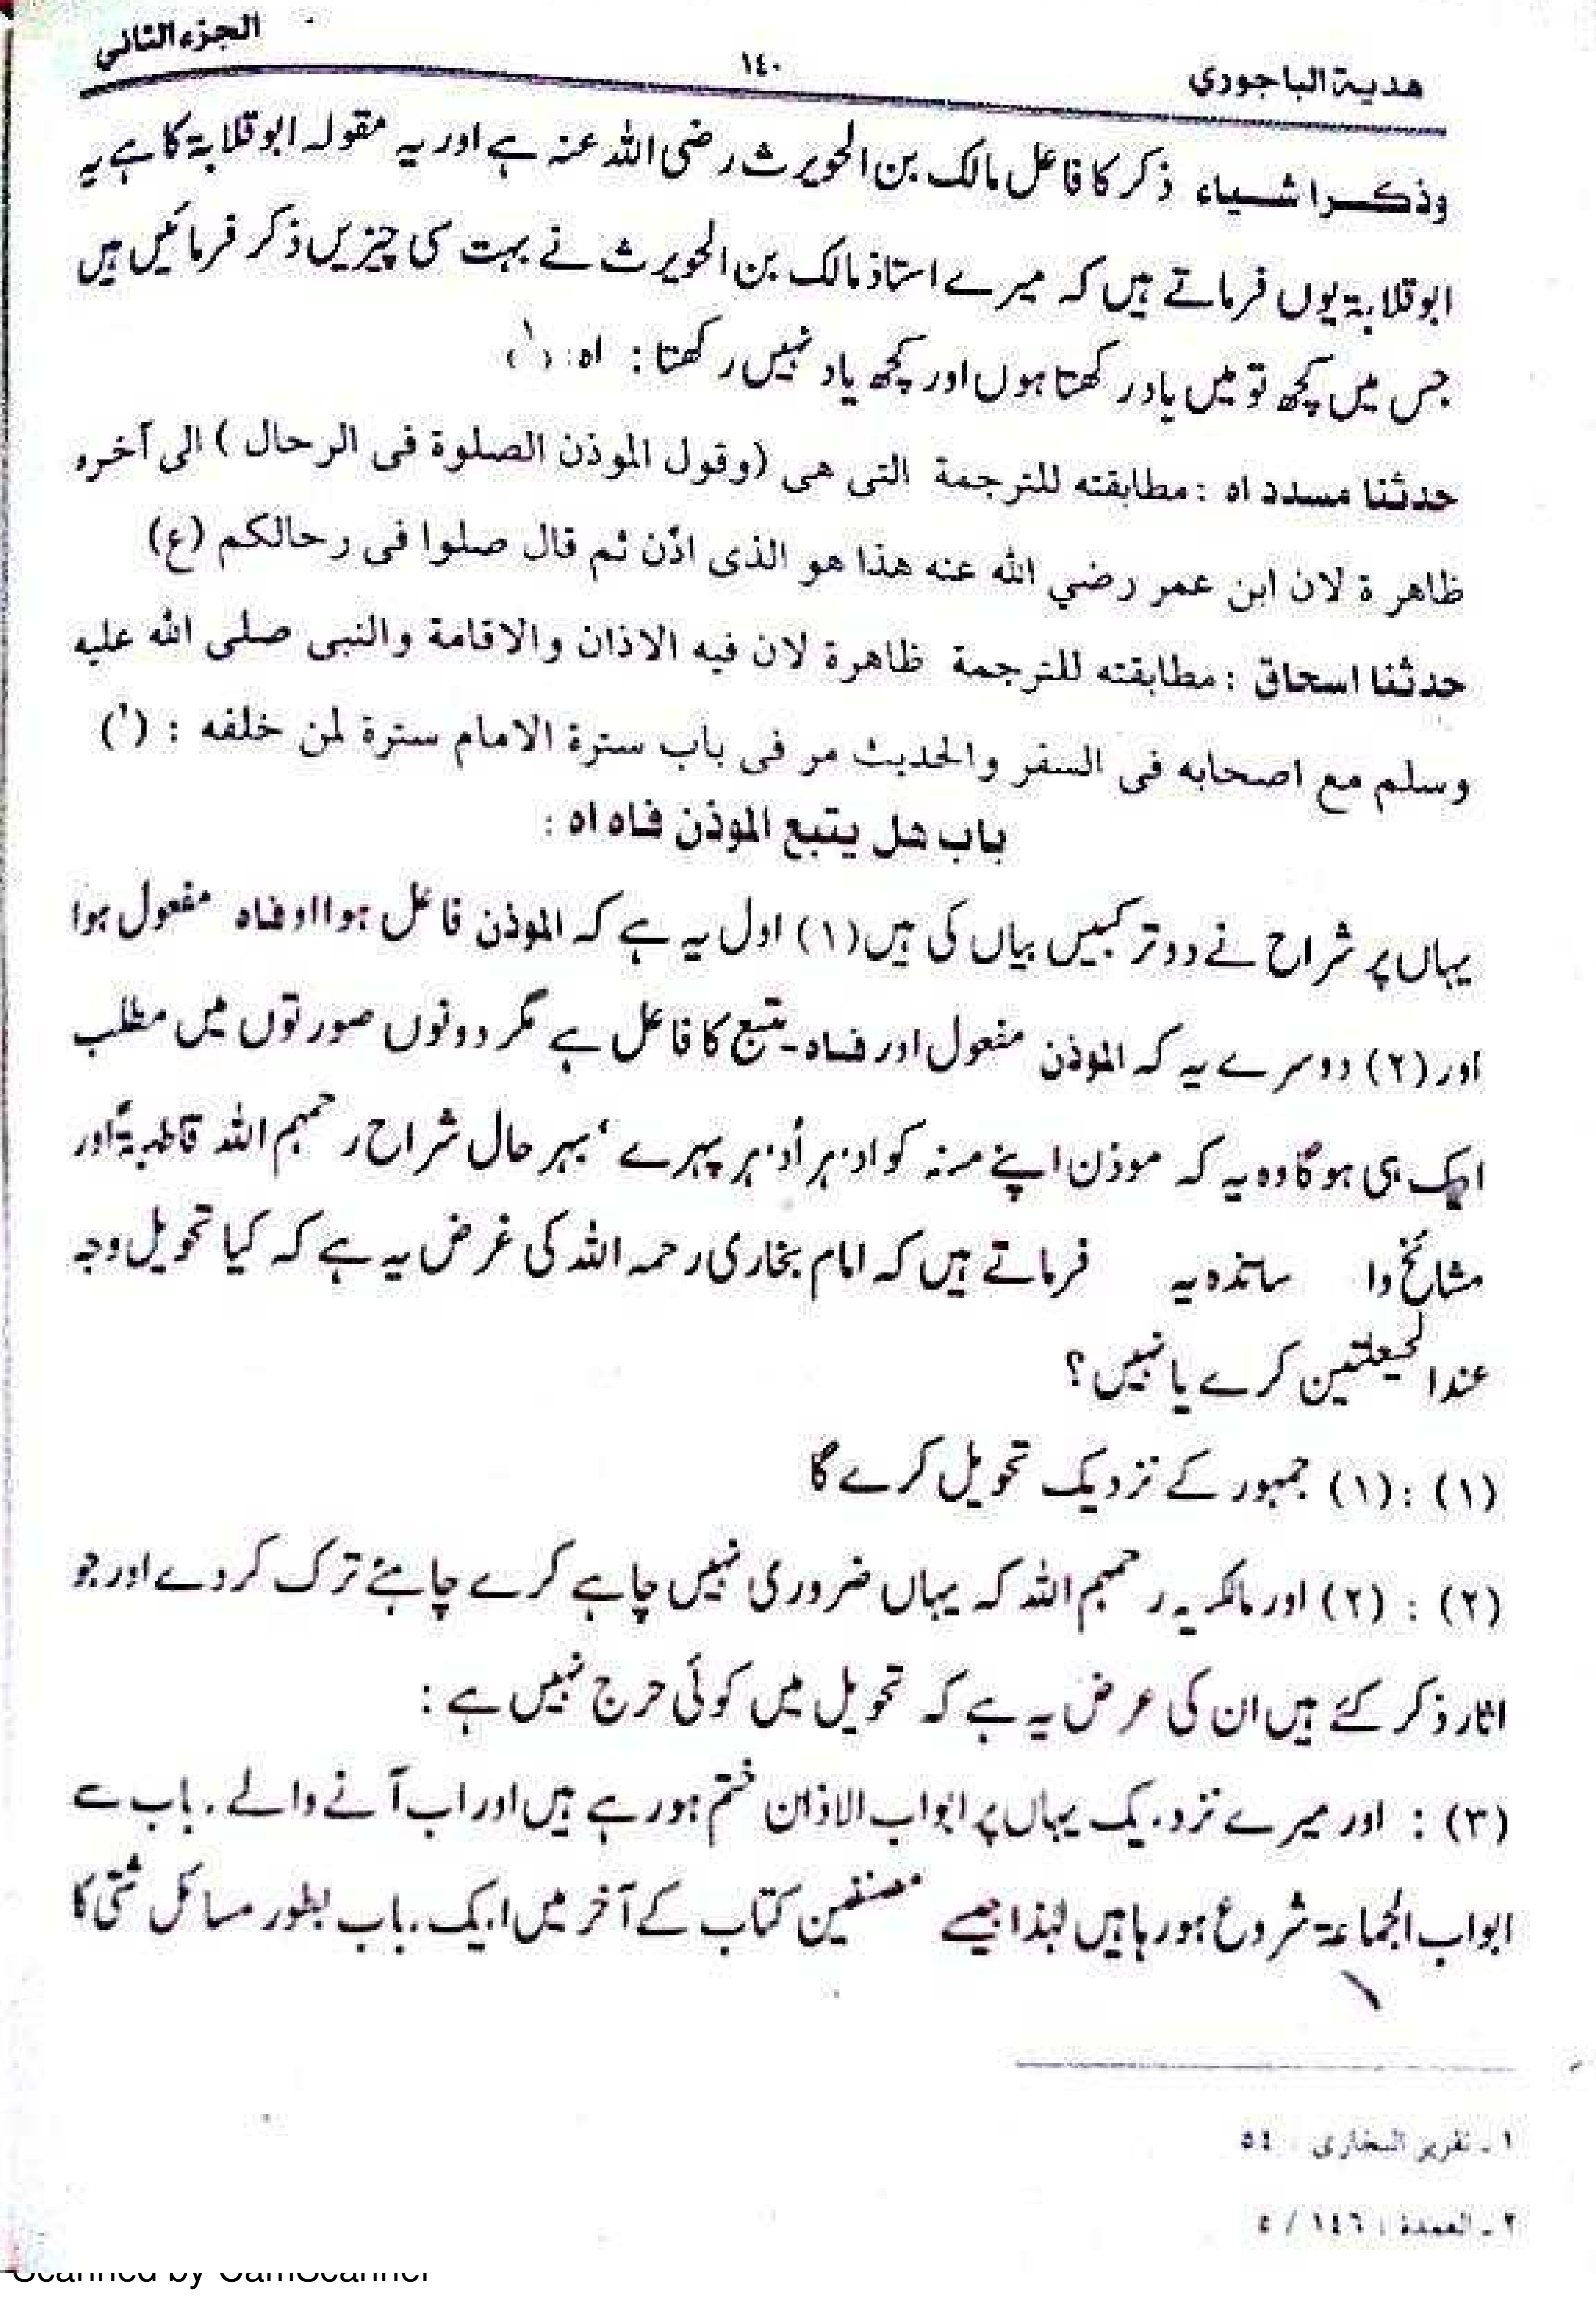 الجزء الثانی
١٤٠
هدیة الباجوری
وذکر اشیاء ذکر کا فاعل مالک بن الحویرث رضی اللہ عنہ ہے اور یہ مقولہ ابوقلابۃ کا ہے یہ
ابوقلابۃ یوں فرماتے ہیں کہ میرے استاذ مالک بن الحویرث نے بہت سی چیزیں ذکر فرمائیں ہیں
جس میں کچھ تو میں یاد رکھتا ہوں اور کچھ یاد نہیں رکھتا : اہ : (١)
حدثنا مسدد اه : مطابقته للترجمة التی هی (وقول الموذن الصلوة فی الرحال) الی آخره
ظاهرة لان ابن عمر رضي الله عنه هذا هو الذی اذّن ثم قال صلوا فی رحالکم (ع)
حدثنا اسحاق : مطابقته للترجمة ظاهرة لان فیه الاذان والاقامة والنبی صلی الله علیه
وسلم مع اصحابه فی السفر والحدیث مر فی باب سترة الامام سترة لمن خلفه : (١)
باب هل یتبع الموذن فاه اه :
یہاں پر شراح نے دو ترکیبیں بیاں کی ہیں (١) اول یہ ہے کہ الموذن فاعل ہو ااو فاہ مفعول ہوا
اور (٢) دوسرے یہ کہ الموذن مفعول اور فاہ۔یتبع کا فاعل ہے مگر دونوں صورتوں میں مطلب
ایک ہی ہوگا وہ یہ کہ موذن اپنے منہ کو ادہر اُدہر پہرے ، بہر حال شراح رحمہم اللہ قاطبۃً اور
مشائخ وا ساتذہ یہ فرماتے ہیں کہ امام بخاری رحمہ اللہ کی غرض یہ ہے کہ کیا تحویل وجہ
عندالحیعلتین کرے یا نہیں؟
(١) : (١) جمہور کے نزدیک تحویل کرے گا
(٢) : (٢) اور مالکیہ رحمہم اللہ کہ یہاں ضروری نہیں چاہے کرے چاہئے ترک کر دے اور جو
اثار ذکر کئے ہیں ان کی عرض یہ ہے کہ تحویل میں کوئی حرج نہیں ہے :
(٣) : اور میرے نزدیک یہاں پر ابواب الاذان ختم ہورہے ہیں اور اب آنے والے باب سے
ابواب الجماعۃ شروع ہورہا ہیں لہٰذا جیسے مصنفین کتاب کے آخر میں ایک باب بطور مسائل شتی کا
١ ـ تقریر البخاری : ٥٤
٢ ـ العمدة : ١٤٦ / ٥
Scanned by CamScanner